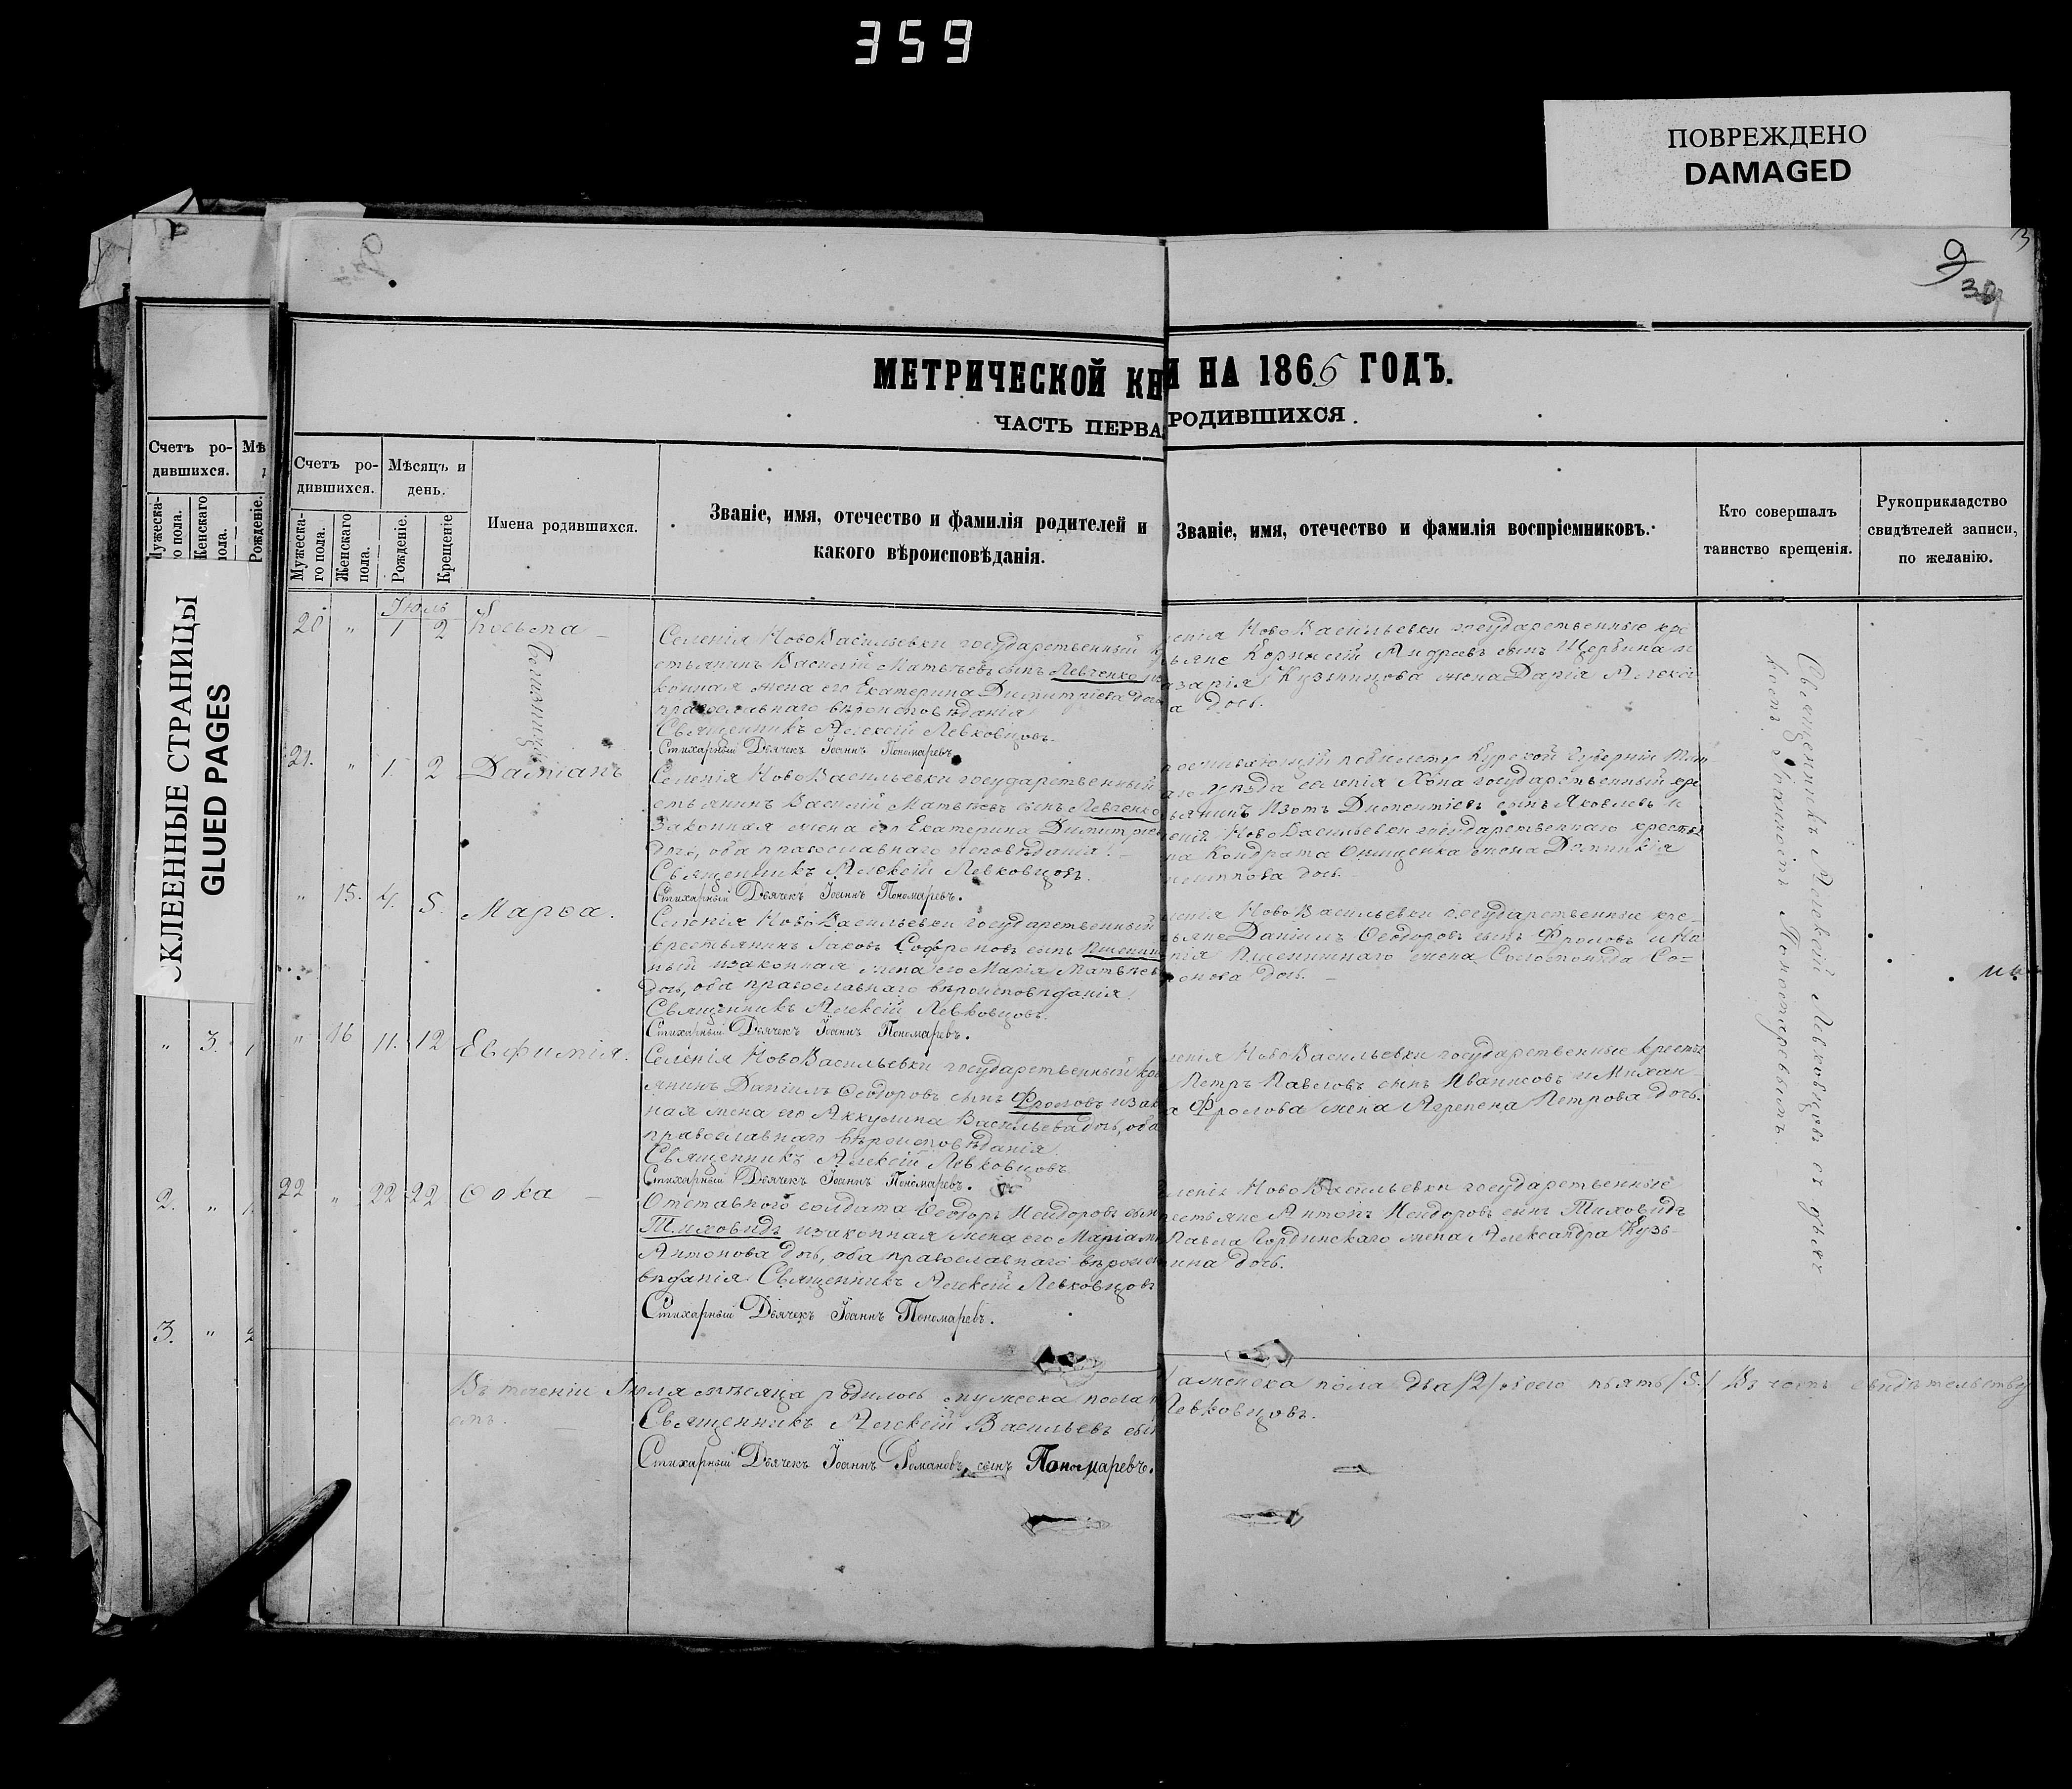 359
ПОВРЕЖДЕНО
DAMAGED
9
МЕТРИЧЕСКОЙ КН И НА 1865 ГОДЪ.
ЧАСТЬ ПЕРВА РОДИВШИХСЯ.
Счетъ ро-
дившихся.
Мѣ
Мужеска-
го пола.
Женскаго
пола.
Рожденіе.
СКЛЕЕННЫЕ СТРАНИЦЫ
GLUED PAGES
" 3. 1
2. "
3. " 2
Счетъ ро-
дившихся.
Мѣсяцъ и
день.
Мужеска-
го пола.
Женскаго
пола.
Рожденіе.
Крещеніе
Имена родившихся.
Званіе, имя, отечество и фамилія родителей и
какого вѣроисповѣданія.
Званіе, имя, отечество и фамилія воспріемниковъ.
Кто совершалъ
таинство крещенія.
Рукоприкладство
свидѣтелей записи,
по желанію.
Іюль
20 " 1 2 Косьма
Близнецы
Селенія НовоВасильевки государственный к
стьянинъ Василій Матвѣевъ сынъ Левченко
конная жена его Екатерина Димитріева дочь
православнаго вѣроисповѣданія
Священникъ Алексій Левковцовъ
Стихарный Дьячекъ Іоаннъ Пономаревъ.
ленія НовоВасильевки государственные кре
ьяне Корнилій Андреевъ сынъ Щербина и
азарія Кузьницова жена Дарія Алексі
а дочь.
21. " 1. 2 Даміанъ
Селенія НовоВасильевки государственный
стьянинъ Василій Матвѣевъ сынъ Левченко
законная жена его Екатерина Димитріе
дочь, оба православнаго исповѣданія.
Священникъ Алексій Левковцовъ.
Стихарный Дьячекъ Іоаннъ Пономаревъ.
по билету Курской Губерніи Тим
аго уѣзда селенія государственный кре
ьянинъ Изотъ сынъ Яковлевъ и
енія НовоВасильевки государственнаго кресть
на Кондрата Онищенка жена
дочь.
" 15. 4. 5. Марѳа.
Селенія НовоВасильевки государственный
крестьянинъ Іаковъ Софроновъ сынъ Пшенич
ный и законная жена его Марія Матвѣев
дочь, оба православнаго вѣроисповѣданія.
Священникъ Алексій Левковцовъ.
Стихарный Дьячекъ Іоаннъ Пономаревъ.
ленія НовоВасильевки государственные кре-
ьяне Даніилъ Ѳеодоровъ сынъ Фроловъ и
Пшеничнаго жена Соломонида Со=
ронова дочь.
" 16 11. 12 Евфимія.
Селенія НовоВасильевки государственный кре
янинъ Даніилъ Ѳеодоровъ сынъ Фроловъ и зак
ная жена его Аккулина Васильева дочь, оба
православнаго вѣроисповѣданія.
Священникъ Алексій Левковцовъ
Стихарный Дьячекъ Іоаннъ Пономаревъ.
ленія НовоВасильевки государственные кресть
Петръ Павловъ сынъ Иванисовъ и Михаи
а Фролова жена Агрепена Петрова дочь.
22 " 22 22 Ѳока
Отставного солдата Ѳеодоръ Исидоровъ сын
Тиховидъ и законная жена его Марія
Антонова дочь, оба православнаго вѣроис
вѣданія. Священникъ Алексій Левковцовъ
Стихарный Дьячекъ Іоаннъ Пономаревъ.
ленія НовоВасильевки государственные
рестьяне Антонъ Исидоровъ сынъ Тиховидъ
Павла Гординскаго жена Александра Кузь-
мина дочь.
Священникъ Алексій Левковцовъ съ дьяч
комъ Іоанномъ Пономаревымъ.
Въ теченіи Іюля мѣсяца родилось мужеска пола
женска пола два /2/ обоего пьять /5./ Въ чемъ свидѣтельству
емъ.
Священникъ Алексій Васильевъ сын
Левковцовъ.
Стихарный Дьячекъ Іоаннъ Романовъ сынъ Пономаревъ.